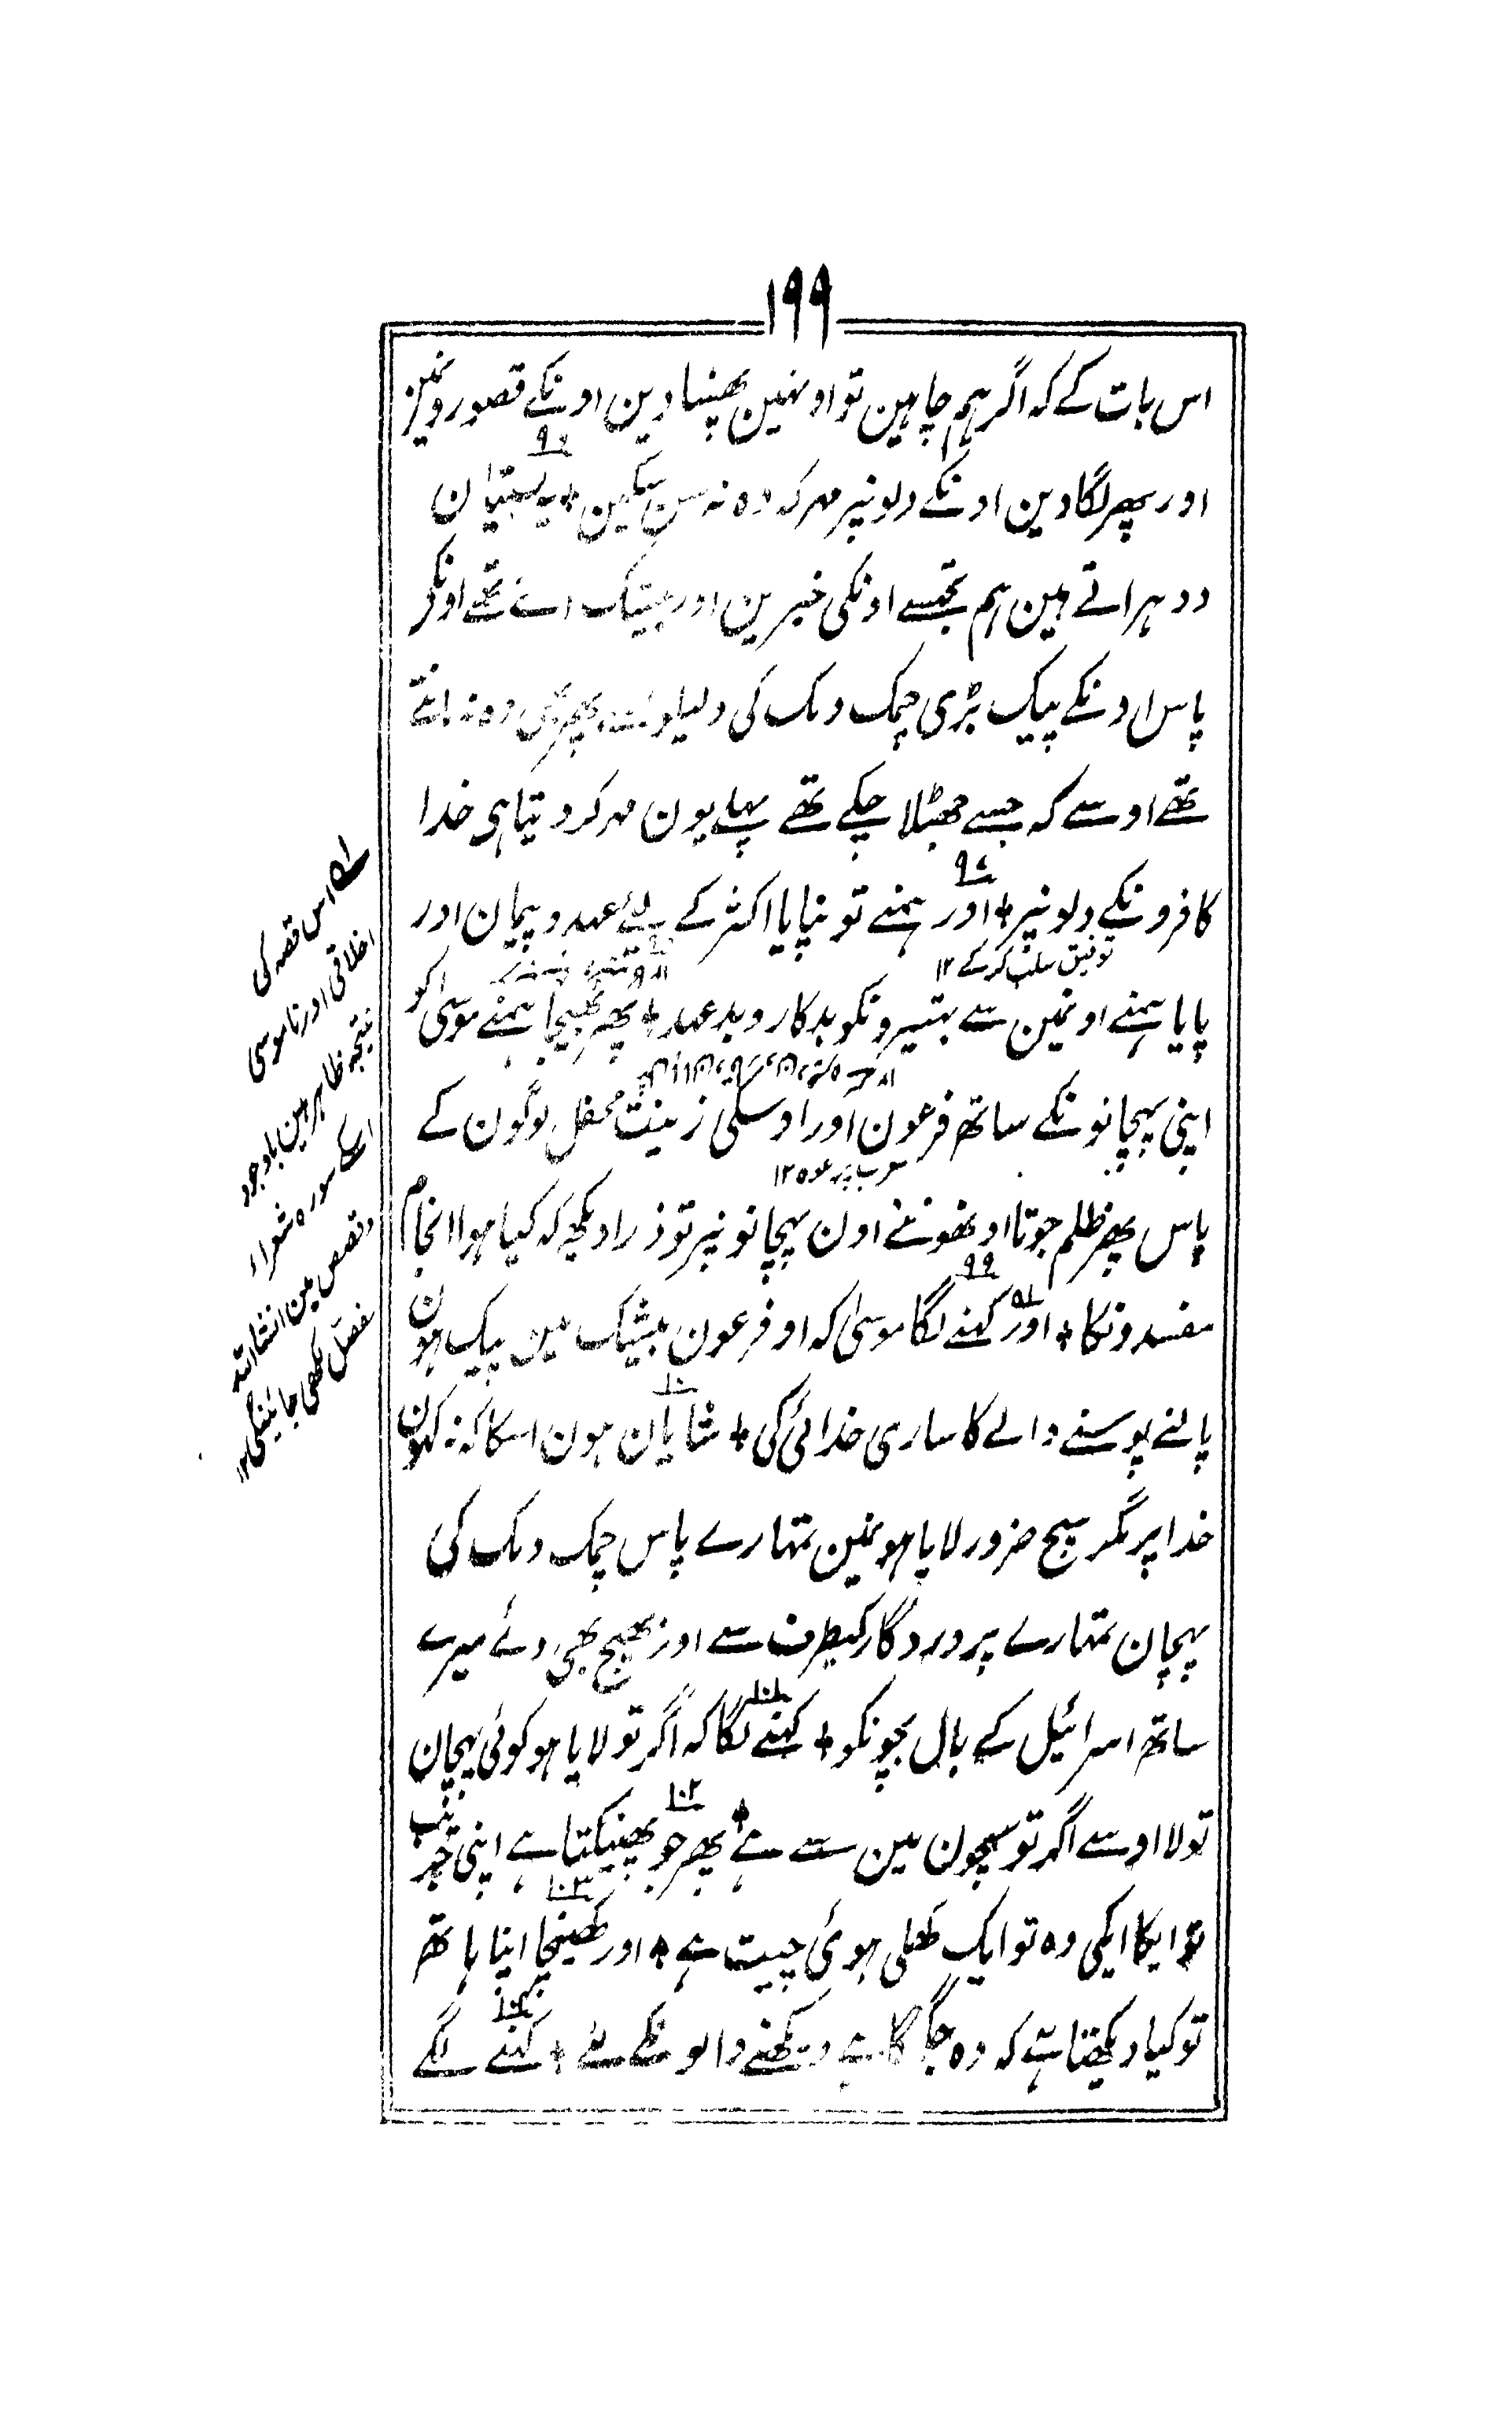 ۱۹۹
اس بات کے کہ اگر ہم چاہین تو اونہین پھنسا دین اونکے قصورونمین
اور پھر لگا دین اونکے دلونپر مہر کہ وہ نہ سن سکین + یہ بستیان
دوہراتے ہین ہم تجھسے اونکی خبرین اور بیشک آئے تھے اونکر
پاس اونکے پیک بڑی چمک دمک کی دلیلونسے پھر بھی وہ نہ مانتے
تھے اوسے کہ جسے جھٹلا چکے تھے پہلے یون مہر کر دیتا ہی خدا
۹۸
کافرونکے دلونپر + اور ہمنے تو نپایا اکثر کے لئے عہد و پیمان اور
توفیق سلب کر کے ۱۲
پایا ہمنے اونمین سے بہتیرونکو بدکار و بدعہد + پھر بھیجا ہمنے موسیٰ کو
اپنی پہچانونکے ساتھ فرعون اور اوسکی زینت محفل لوگون کے
پاس پھر ظلم جوتا اونھونے اون پہچانونپر تو ذرا دیکھ کہ کیا ہوا انجام
۹۹
مفسدونکا + اور کہنے لگا موسیٰ کہ او فرعون بیشک مین پیک ہون
پالنے پوسنے والے کا ساری خدائی کی + شایان ہون اسکا کہ نہ کہون
خدا پر مگر سچ ضرور لایا ہونمین تمہارے پاس چمک دمک کی
پہچان تمہارے پروردگار کیطرف سے اور بھیج بھی دے میرے
۱۰۱
ساتھ اسرائیل کے بال بچونکو + کہنے لگا کہ اگر تو لایا ہو کوئی پہچان
۱۰۲
تو لا اوسے اگر تو سچون مین سے ہے + پھر جو پھینکتا ہے اپنی جریب
۱۰۳
تو ایکا ایکی وہ تو ایک کھلی ہوئی چیت ہے + اور کھینچا اپنا ہاتھ
تو کیا دیکھتا ہے کہ وہ جگمگا ہے دیکھنے والونکے لئے + کہنے لگے
اس قصہ کی
اخلاقی اور ناموسی
نتیجہ ظاہر ہین باوجود
اسکے سورہ شعراء
و قصص مین انشاءاللہ
مفصل لکھی جائینگی ۱۲